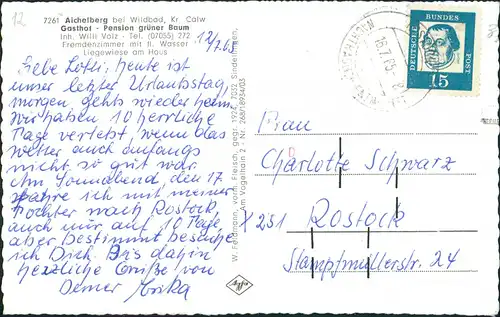 12
7261 Aichelberg bei Wildbad, Kr. Calw
Gasthof - Pension grüner Baum
Inh. Willi Volz - Tel. (07055) 272
Fremdenzimmer mit fl. Wasser
Liegewiese am Haus
12/7.65
Liebe Lotti, heute ist
unser letzter Urlaubstag
morgen gehts wieder heim
wir haben 10 herrliche
Tage verlebt, wenn das
Wetter auch anfangs
nicht so gut war.
Am Sonnabend den 17.
fahre ich mit meiner
Tochter nach Rostock
auch nur auf 10 Tage,
aber Bestimmt besuche
ich Dich. Bis dahin
herzliche Grüße von
Deiner Erika
W. Feldmann, vorm. Fleisch, gegr. 1924, 7032 Sindelfingen,
Am Vogelhain 2 - Nr. 268/18934/03
DEUTSCHE BUNDES POST
15
Frau
Charlotte Schwarz
X 251 Rostock
Stampfmüllerstr. 24